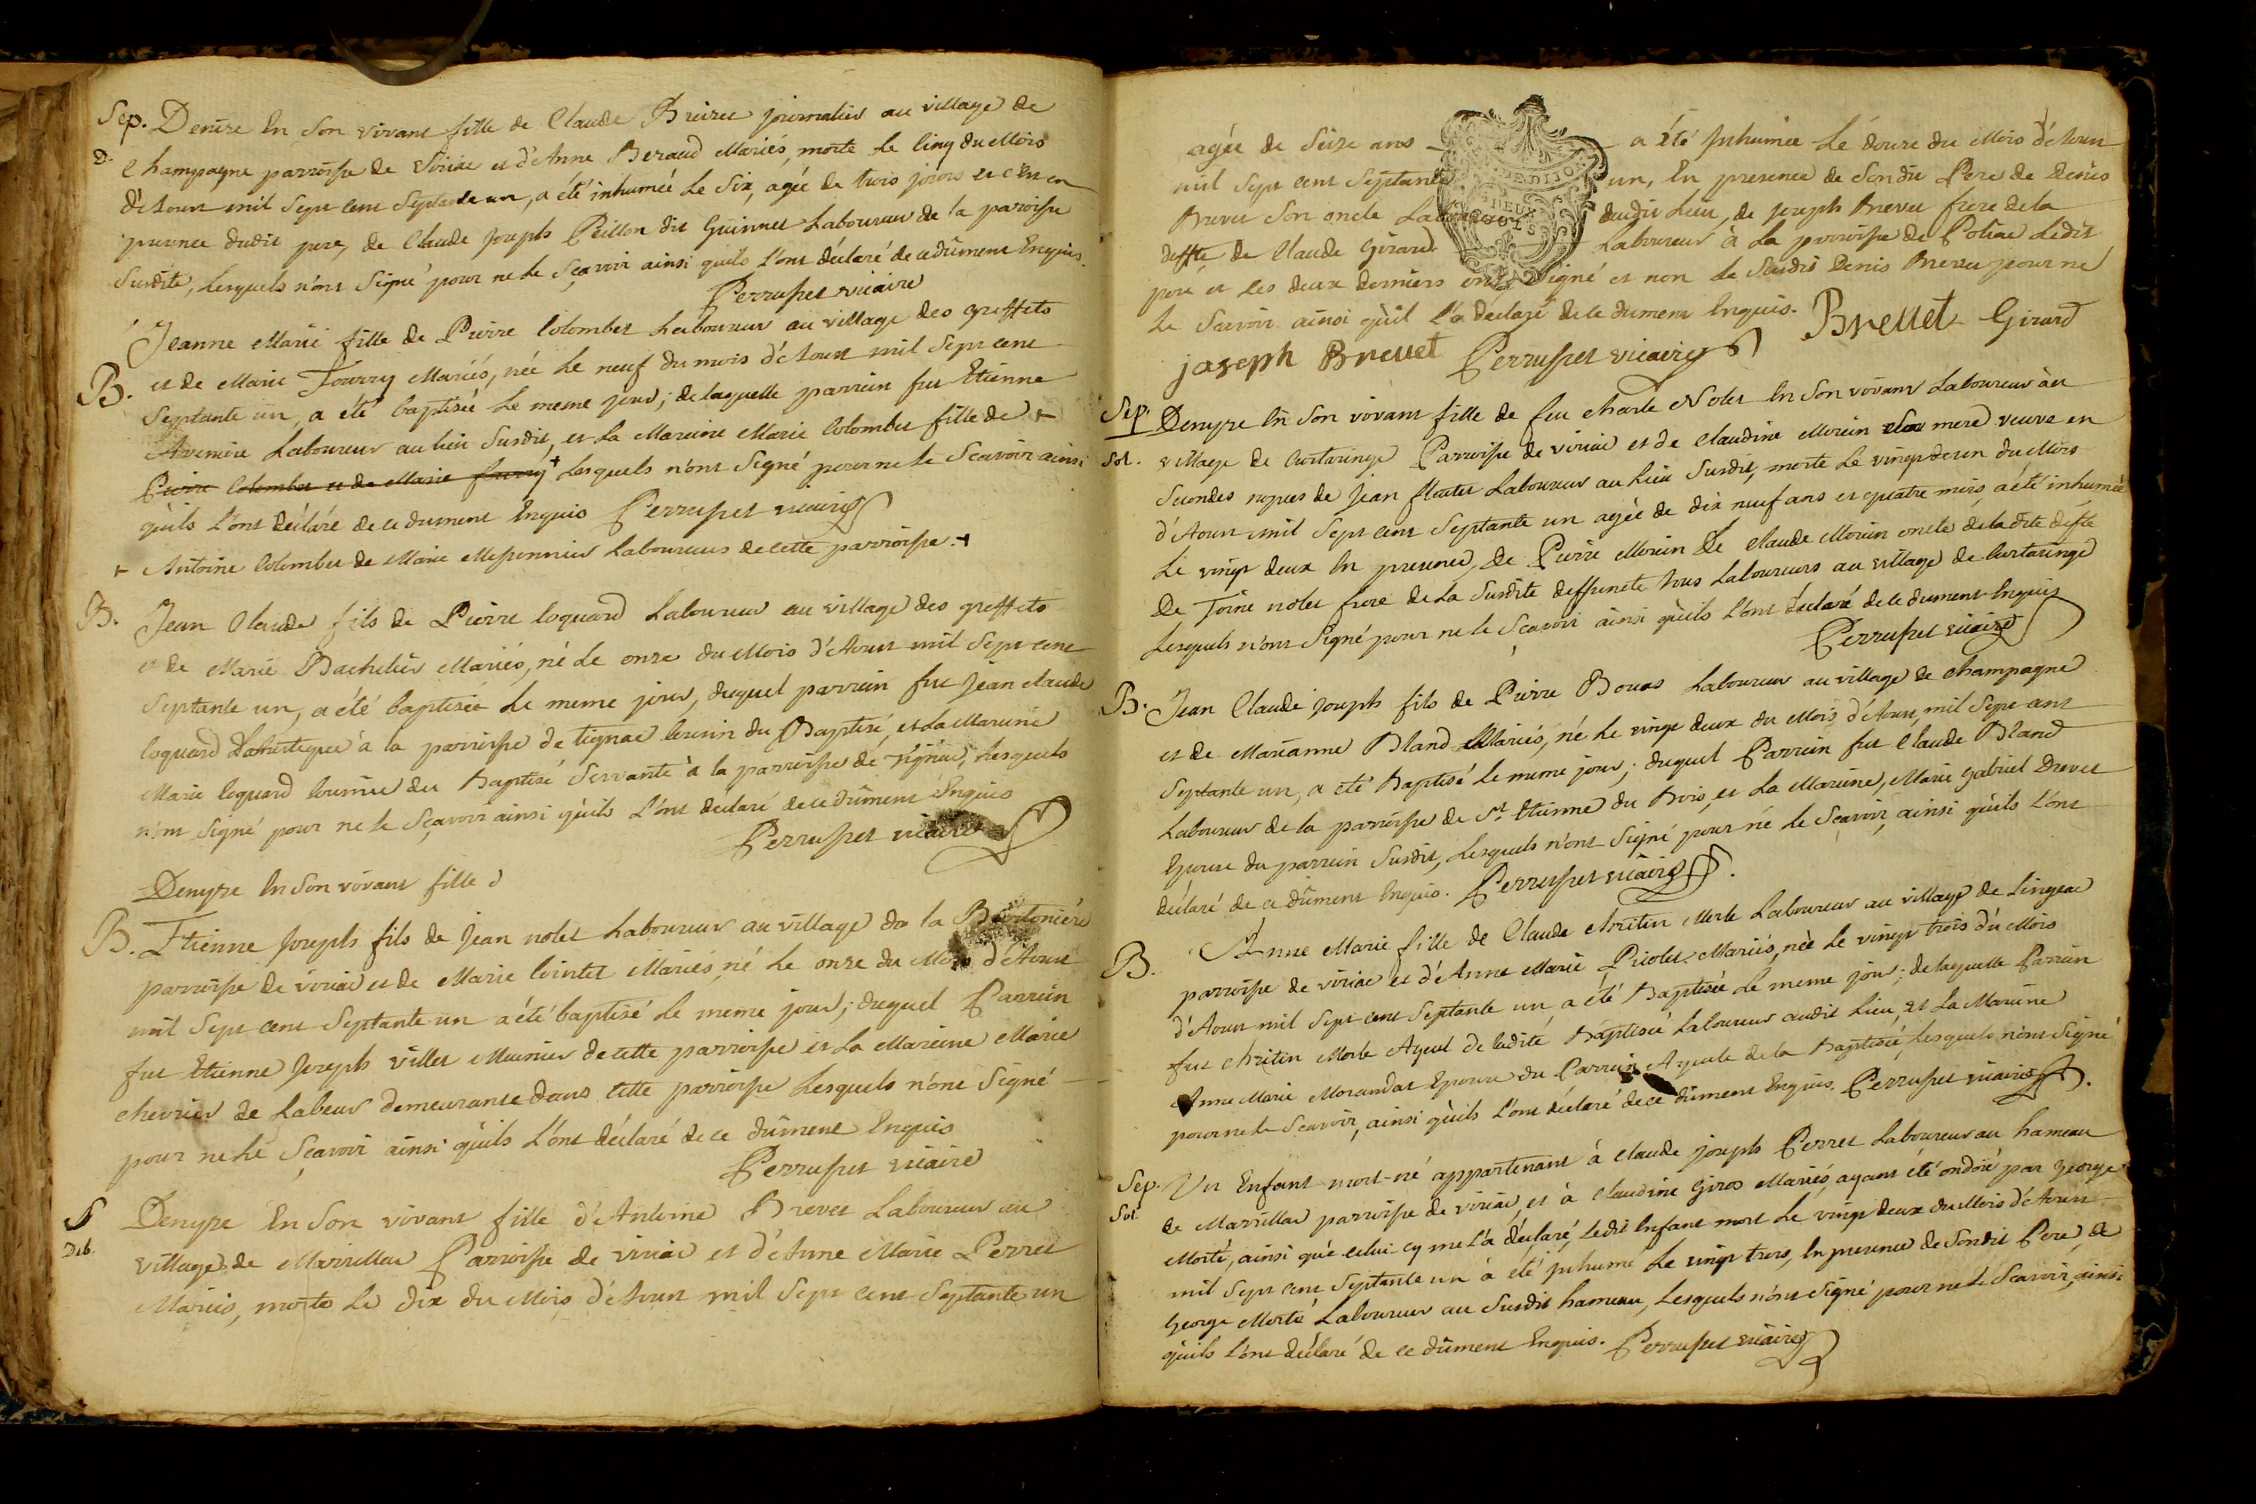 Sep. Denize En Son vivant fille de Claude Buiret journalier au village de
D. Champagne parroisse de Viriac et d'Anne Beraud Mariés, morte le cinq du Mois
d'Aoust mil Sept cent Septante un, a été inhumée Le Six, agée de trois jours et c'est en
presence dudit pere, de Claude Joseph Peillon dit Guinnet Laboureur de la paroisse
Susdite, Lesquels n'ont Signé pour ne le Sçavoir ainsi quils L'ont déclaré de ce dûment Enquis.
Perruset vicaire
Jeanne Marie fille de Pierre Colombet Laboureur au village des greffets
B. et de Marie Fourry Mariés, née Le neuf du mois d'Aoust mil Sept cent
Septante un, a été baptisée Le meme jour; de laquelle parrein fut Etienne
Laboureur au lieu Susdit, et La Mareine Marie Colombet fille de +
Pierre Colombet et de Marie fourry + Lesquels n'ont Signé pour ne le Scavoir ainsi
qu'ils L'ont déclaré de ce dument Enquis Perruset vicaire
+ Antoine Colombet de Marie Messonnier Laboureurs de cette parroisse. +
B. Jean Claude fils de Pierre Coquard Laboureur au village des greffets
et de Marie Bachelier Mariés, né Le onze du Mois d'Aoust mil Sept cent
Septante un, a été baptisée Le meme jour, duquel parrein fut Jean Claude
Coquard domestique à la parroisse de Tignac Cousin du Baptisé, et La Mareine
Marie Coquard Cousine du Baptisé Servante à la parroisse de Tignac, Lesquels
n'ont Signé pour ne le Sçavoir ainsi qu'ils L'ont declaré de ce dûment Enquis
Perruset vicaire
Denyze En Son vivant fille d
B. Etienne Joseph fils de Jean nolet Laboureur au village de la Bertoniére
parroisse de viriac et de Marie Cointet Mariés, né Le onze du Mois d'Aoust
mil Sept cent Septante un a été baptisé Le meme jour; duquel Parrein
fut Etienne Joseph villet Meunier de cette parroisse et La Mareine Marie
chevrier de Labeur demeurante dans cette parroisse Lesquels n'ont Signé
pour ne Le Sçavoir ainsi qu'ils L'ont déclaré de ce dûment Enquis
Perruset vicaire
S Denyze En Son vivant fille d'Antoine Brevet Laboureur au
Deb. village de Marillac Parroisse de viriac et d'Anne Marie Perret
Mariés, morte Le dix du Mois d'Aoust mil Sept cent Septante un
agée de Seize ans a été Inhumée Le douze du Mois d'Aoust
mil Sept cent Septante un, En presence de Son dit Pere de Denis
Brevet Son oncle Laboureur dudit Lieu, de Joseph Brevet frere de la
deffte de Claude Girard Laboureur à La parroisse de Poliac Ledit
pere et Les deux derniers ont Signé et non Le Susdit Denis Brevet pour ne
Le Savoir ainsi qu'il L'a declaré de ce dument Enquis. Brevet Girard
joseph Brevet Perruset vicaire
Sep. Denyze En Son vivant fille de feu charle Nolet En Son vivant Laboureur au
Sol. village de Curtaringe Parroisse de viriac et de Claudine Morein Sa mere veuve en
Secondes nopces de Jean Laboureur au Lieu Susdit, morte Le vingt deux du Mois
d'Aoust mil Sept cent Septante un agée de dix neuf ans et quatre mois, a été inhumée
Le vingt deux En presence De Pierre Morein De Claude Morein oncle de la dite deffte
De Toine nolet frere de La Susdite deffuncte tous Laboureurs au village de Curtaringe
Lesquels n'ont Signé pour ne le Sçavoir ainsi qu'ils L'ont déclaré de ce dument Enquis
Perruset vicaire
B. Jean Claude Joseph fils de Pierre Bouas Laboureur au village de Champagne
et de Marianne Bland Mariés, né Le vingt deux du Mois d'Aoust, mil Sept cent
Septante un, a été Baptisé Le meme jour; duquel Parrein fut Claude Bland
Laboureur de la parroisse de St. Etienne du Bois, et La Mareine, Marie Gabriel Drevet
Epouse du parrein Susdit, Lesquels n'ont Signé pour né le Sçavoir, ainsi qu'ils L'ont
déclaré de ce dûment Enquis. Perruset vicaire.
B. Anne Marie fille de Claude Chritin Merle Laboureur au village de Lingeac
parroisse de viriac et d'Anne Marie Priolet Mariés, née Le vingt trois du Mois
d'Aoust mil Sept cent Septante un, a été Baptisée Le meme jour; de laquelle Parrein
fut Chritin Merle Ayeul de ladite Baptisée Laboureur audit Lieu, et La Mareine
Anne Marie Morandat Epouse du Parrein Ayeule de la Baptisée, Lesquels n'ont Signé
pour ne le Scavoir, ainsi qu'ils L'ont déclaré de ce dûment Enquis. Perruset vicaire.
Sep. Un Enfant mort-né appartenant à Claude joseph Perret Laboureur au hameau
Sol. de Marillac parroisse de viriac, et à Claudine Giros Mariés, ayant été ondoié par George
Morté, ainsi que celui cy me L'a déclaré, Ledit Enfant mort Le vingt deux du Mois d'Aoust
mil Sept cent Septante un a été Inhumé Le vingt trois, En presence de Sondit Pere, de
George Morté Laboureur au Susdit hameau, Lesquels n'ont Signé pour ne le Scavoir, ainsi
qu'ils L'ont déclaré de ce dûment Enquis. Perruset vicaire